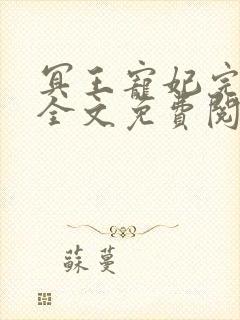 冥王寵妃完
全文免費閱
蘇蔓